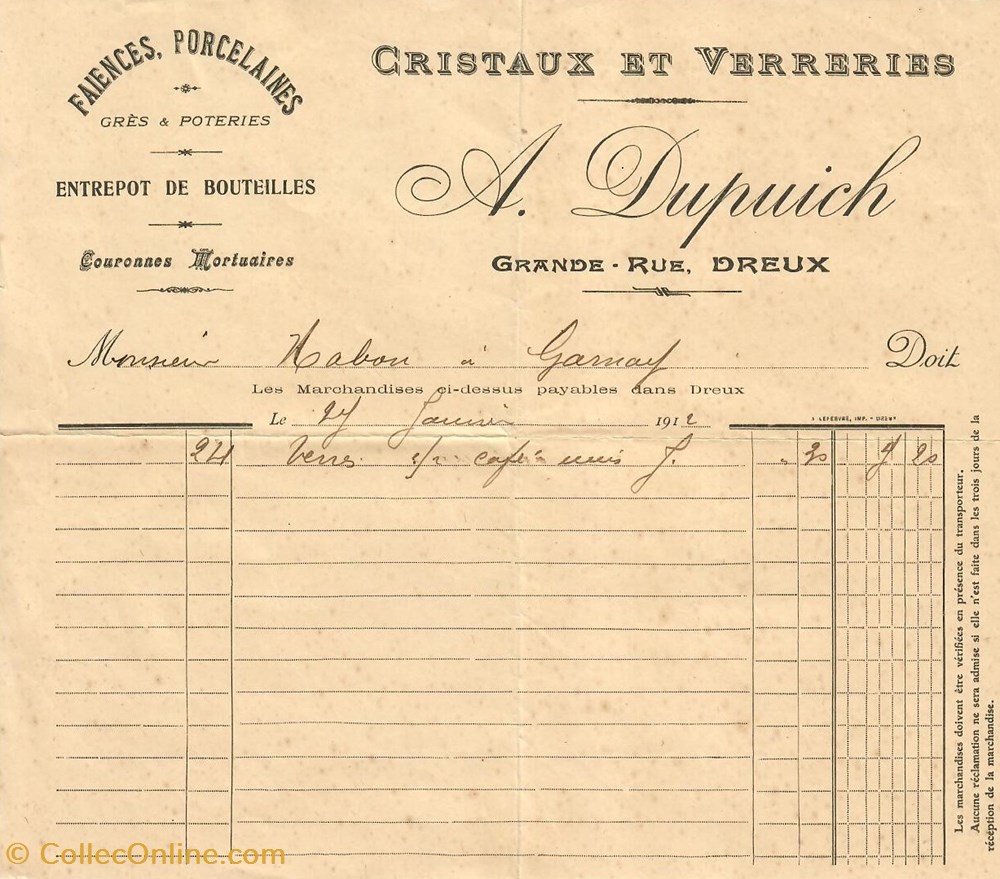 FAIENCES, PORCELAINES
GRÈS & POTERIES
ENTREPOT DE BOUTEILLES
Couronnes Mortuaires
CRISTAUX ET VERRERIES
A. Dupuich
GRANDE - RUE, DREUX
Monsieur Habon à Garnay Doit
Les Marchandises ci-dessus payables dans Dreux
Le 27 Janvier 1912
LEFEBVRE, IMP. - DREUX
24 Verres s/ café unis " 20
20
Les marchandises doivent être vérifiées en présence du transporteur.
Aucune réclamation ne sera admise si elle n'est faite dans les trois jours de la
réception de la marchandise.
© CollecOnline.com